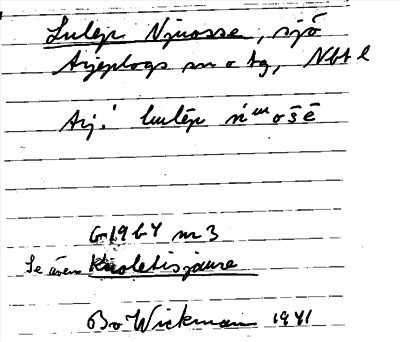 Lulep Njuosse, sjö
Arjeplogs sn o tg, Nbtl
Arj.: lulēp
G1964 nr 3
Se även Kuoletisjaure
Bo Wickman 1941